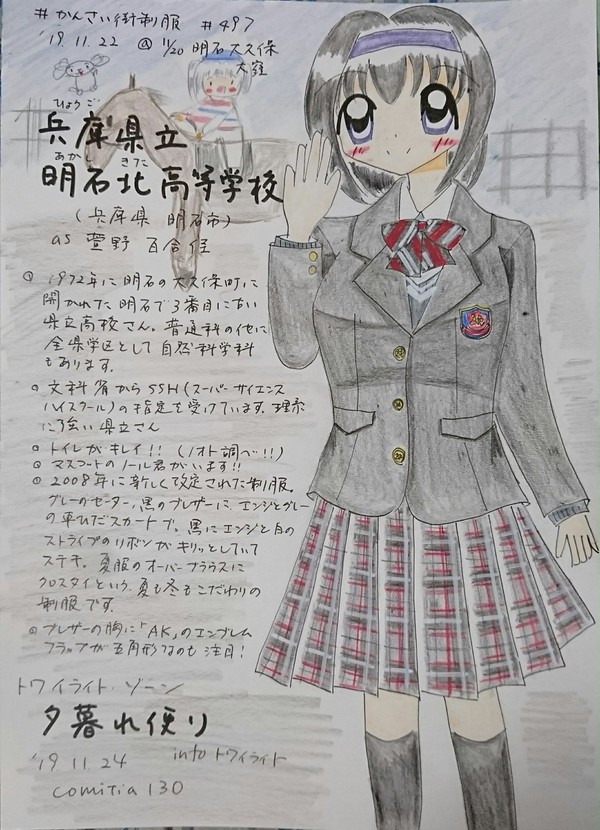 #かんさい街制服 #497
'19.11.22 @ 11/20 明石大久保
大窪
ひょうご
兵庫県立
あかし きた
明石北高等学校
(兵庫県 明石市)
as 萱野 百合佳
1972年に明石の大久保町に
開かれた明石で3番目に古い
県立高校さん。普通科の他に
全県学区として自然科学科
もあります。
文科省からSSH(スーパーサイエンス
ハイスクール)の指定を受けています。理系
に強い県立さん
トイレがキレイ!! (ノオト調べ!!)
マスコットのノール君がいます!!
2008年に新しく改定された制服。
グレーのセーター、黒のブレザーに、エンジとグレー
の車ひだスカートで。黒にエンジと白の
ストライプのリボンがキリッとしていて
ステキ。夏服のオーバーブラウスに
クロスタイという、夏も冬もこだわりの
制服です。
ブレザーの胸に「AK」のエンブレム
フラップが五角形なのも注目!
トワイライト・ゾーン
夕暮れ便り
'19.11.24 into トワイライト
comitia 130